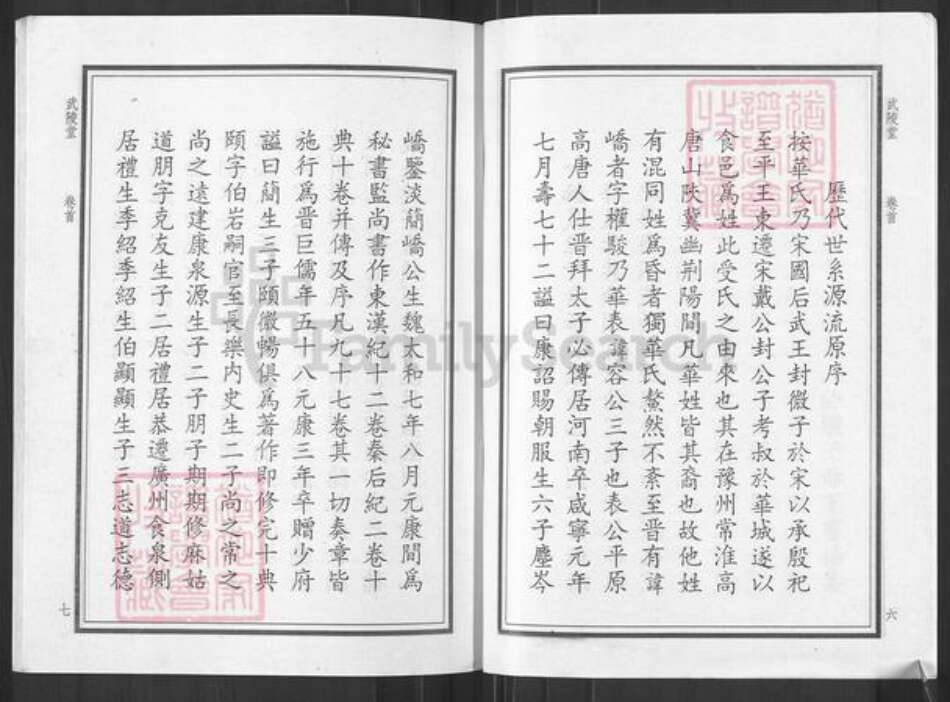 武陵堂
卷首
六
歷代世系源流原序
按華氏乃宋國后武王封微子於宋以承殷祀
至平王東遷宋戴公封公子考叔於華城遂以
食邑爲姓此受氏之由來也其在豫州常淮高
唐山陜冀幽荆陽間凡華姓皆其裔也故他姓
有混同姓爲昏者獨華氏鰲然不紊至晋有諱
嶠者字權駿乃華表諱容公三子也表公平原
高唐人仕晋拜太子必傳居河南卒咸寧元年
七月壽七十二謚曰康詔賜朝服生六子廛岑
嶠鑒淡簡嶠公生魏太和七年八月元康間爲
秘書監尚書作東漢紀十二卷秦后紀二卷十
典十卷并傳及序凡九十七卷其一切奏章皆
施行爲晋巨儒年五十八元康三年卒贈少府
謚曰簡生三子頤徽暢俱爲著作即修完十典
頤字伯岩嗣官至長樂内史生二子尚之常之
尚之遠建康泉源生子二子朋子期期修麻姑
道朋字克友生子二居禮居恭遷廣州食泉側
居禮生季紹季紹生伯顯顯生子三志道志德
武陵堂
卷首
七
FamilySearch